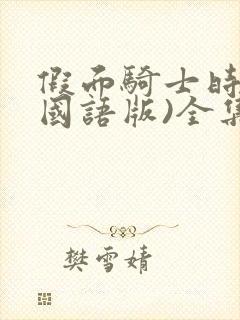 假面騎士時
國語版)全集
樊雪婧